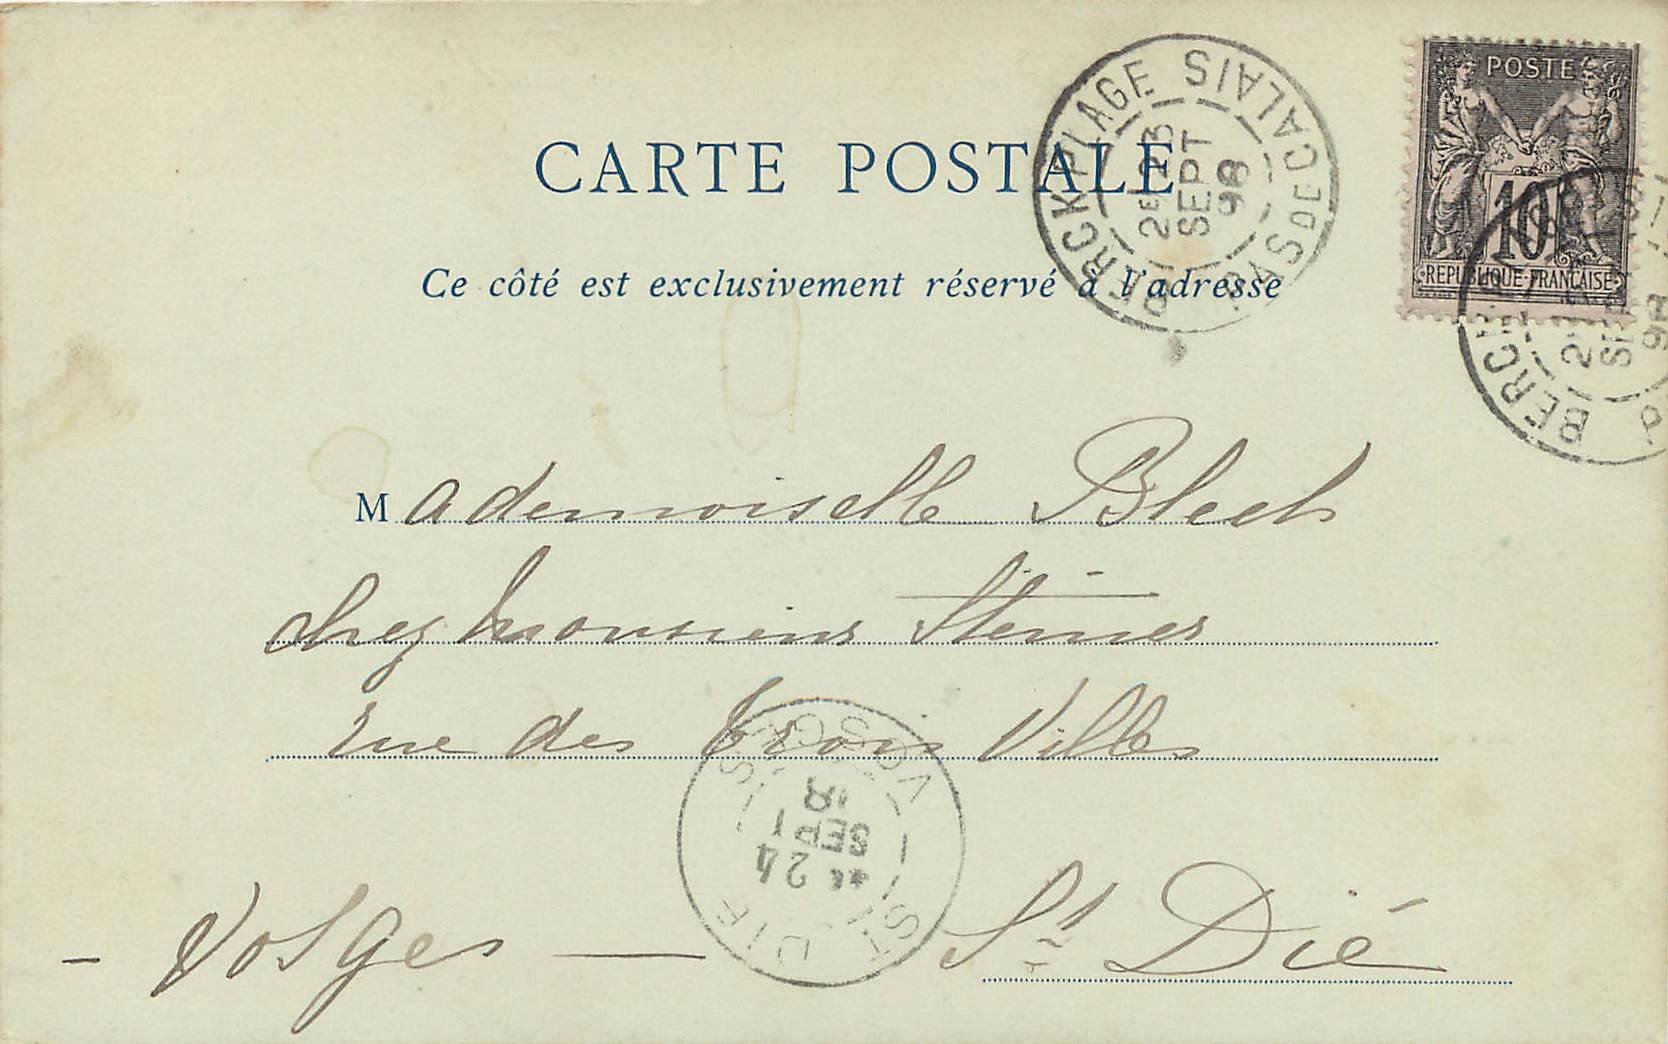 CARTE POSTALE
Ce côté est exclusivement réservé à l'adresse
BERCK PLAGE PAS DE CALAIS
2E 23
SEPT
98
POSTE
10
REPUBLIQUE FRANÇAISE
BERCK
SE
98
P
Mademoiselle Blech
Chez Monsieur Steiner
rue des trois Villes
- Vosges — St Dié
ST DIE VOSGES
24
SEPT
98